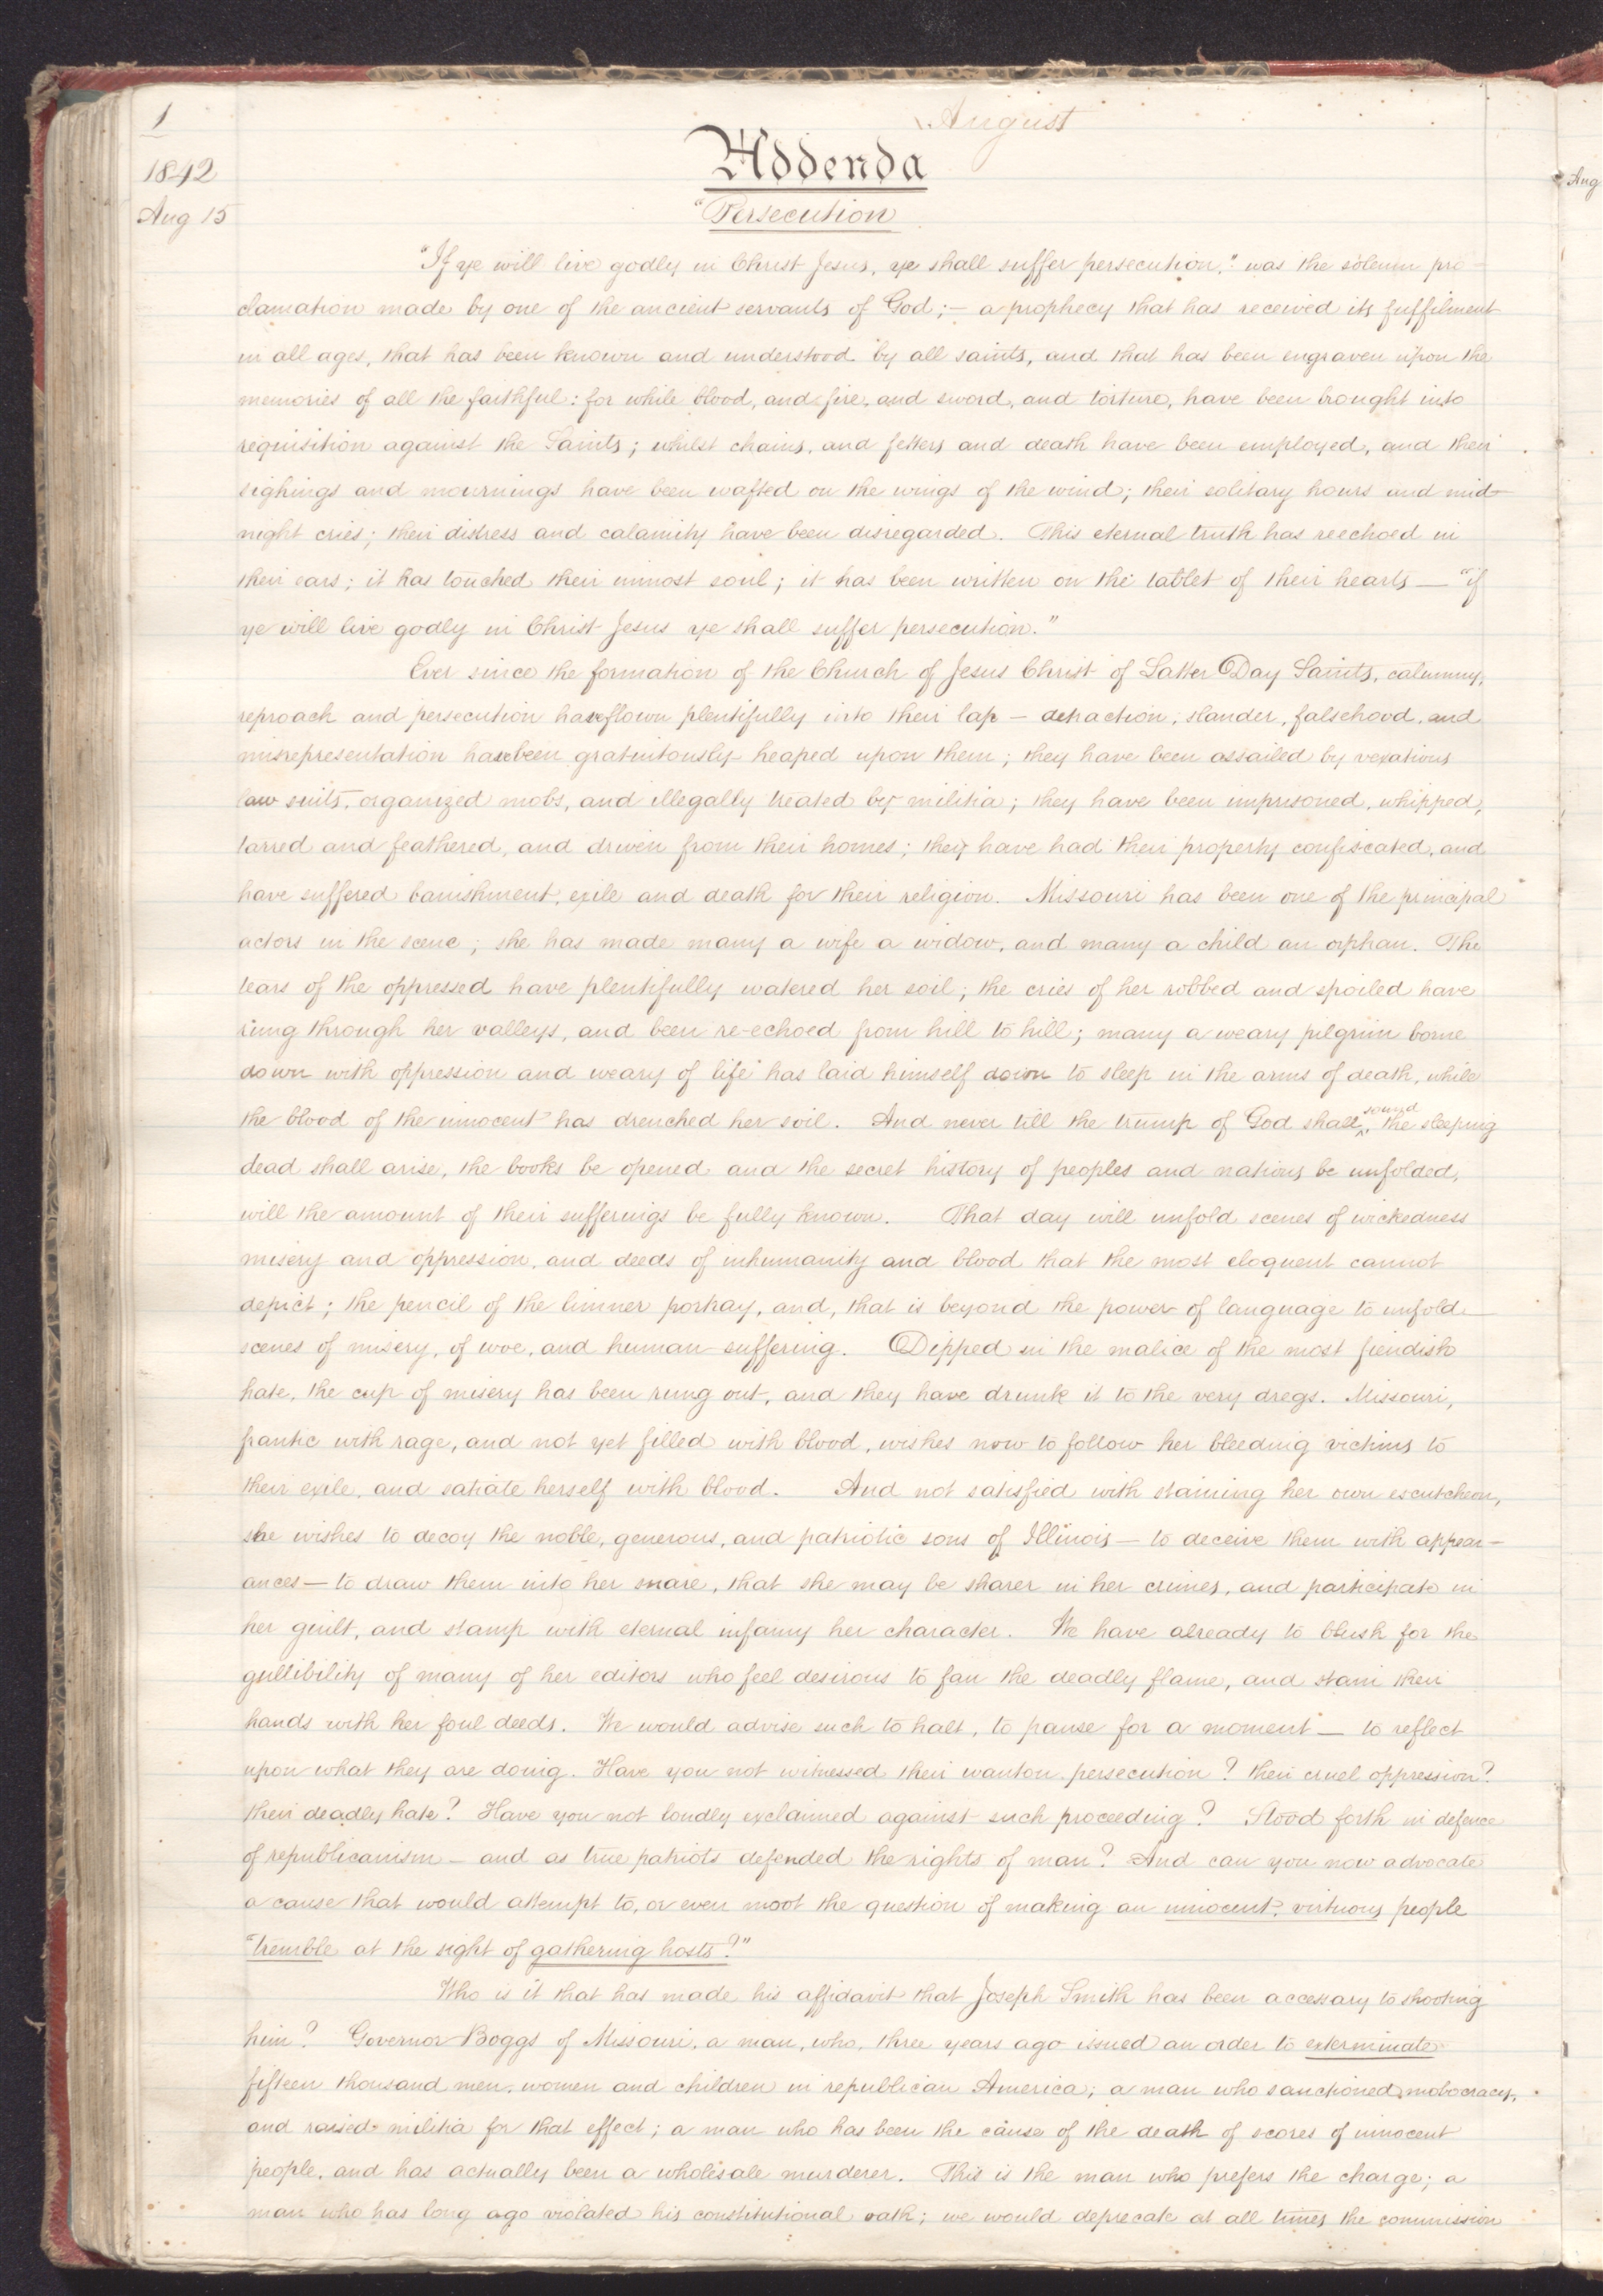 1
August
1842
Addenda
Aug
Aug 15
"Persecution
"If ye will live godly in Christ Jesus, ye shall suffer persecution," was the solemn pro-
clamation made by one of the ancient servants of God;— a prophecy that has received its fulfilment
in all ages, that has been known and understood by all saints, and that has been engraven upon the
memories of all the faithful: for while blood, and fire, and sword, and torture, have been brought into
requisition against the Saints; whilst chains, and fetters and death have been employed, and their
sighings and mournings have been wafted on the wings of the wind; their solitary hours and mid-
night cries; their distress and calamity have been disregarded. This eternal truth has reechoed in
their ears; it has touched their inmost soul; it has been written on the tablet of their hearts — "if
ye will live godly in Christ Jesus ye shall suffer persecution."
Ever since the formation of the Church of Jesus Christ of Latter Day Saints, calumny,
reproach and persecution have flown plentifully into their lap — detraction, slander, falsehood, and
misrepresentation have been gratuitously heaped upon them; they have been assailed by vexatious
law suits, organized mobs, and illegally treated by militia; they have been imprisoned, whipped,
tarred and feathered, and driven from their homes; they have had their property confiscated, and
have suffered banishment, exile and death for their religion. Missouri has been one of the principal
actors in the scene; she has made many a wife a widow, and many a child an orphan. The
tears of the oppressed have plentifully watered her soil; the cries of her robbed and spoiled have
rung through her valleys, and been re-echoed from hill to hill; many a weary pilgrim borne
down with oppression and weary of life has laid himself down to sleep in the arms of death, while
the blood of the innocent has drenched her soil. And never till the trump of God shall sound, the sleeping
dead shall arise, the books be opened and the secret history of peoples and nations be unfolded,
will the amount of their sufferings be fully known. That day will unfold scenes of wickedness
misery and oppression, and deeds of inhumanity and blood that the most eloquent cannot
depict; the pencil of the limner portray, and, that is beyond the power of language to unfold
scenes of misery, of woe, and human suffering. Dipped in the malice of the most fiendish
hate, the cup of misery has been rung out, and they have drunk it to the very dregs. Missouri,
frantic with rage, and not yet filled with blood, wishes now to follow her bleeding victims to
their exile, and satiate herself with blood. And not satisfied with staining her own escutcheon,
she wishes to decoy the noble, generous, and patriotic sons of Illinois — to deceive them with appear-
ances — to draw them into her snare, that she may be sharer in her crimes, and participate in
her guilt, and stamp with eternal infamy her character. We have already to blush for the
gullibility of many of her editors who feel desirous to fan the deadly flame, and stain their
hands with her foul deeds. We would advise such to halt, to pause for a moment — to reflect
upon what they are doing. Have you not witnessed their wanton persecution? their cruel oppression?
their deadly hate? Have you not loudly exclaimed against such proceeding? Stood forth in defence
of republicanism — and as true patriots defended the rights of man? And can you now advocate
a cause that would attempt to, or even moot the question of making an innocent, virtuous people
"tremble at the sight of gathering hosts?"
Who is it that has made his affidavit that Joseph Smith has been accessary to shooting
him? Governor Boggs of Missouri, a man, who, three years ago issued an order to exterminate
fifteen thousand men, women and children in republican America; a man who sanctioned mobocracy,
and raised militia for that effect; a man who has been the cause of the death of scores of innocent
people, and has actually been a wholesale murderer. This is the man who prefers the charge; a
man who has long ago violated his constitutional oath; we would deprecate at all times the commission